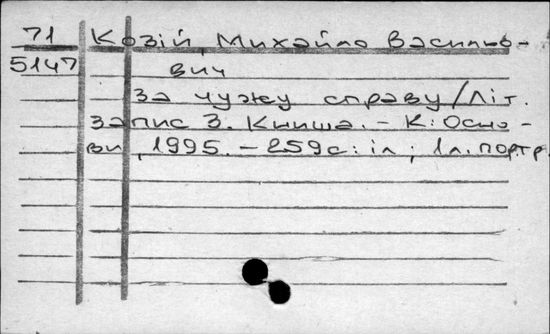 71
5147
Козій, Михайло Васильо-
вич
За чужу справу / Літ.
запис З. Книша. - К: Осно-
ви, 1995. - 259с: іл; 1л. портр